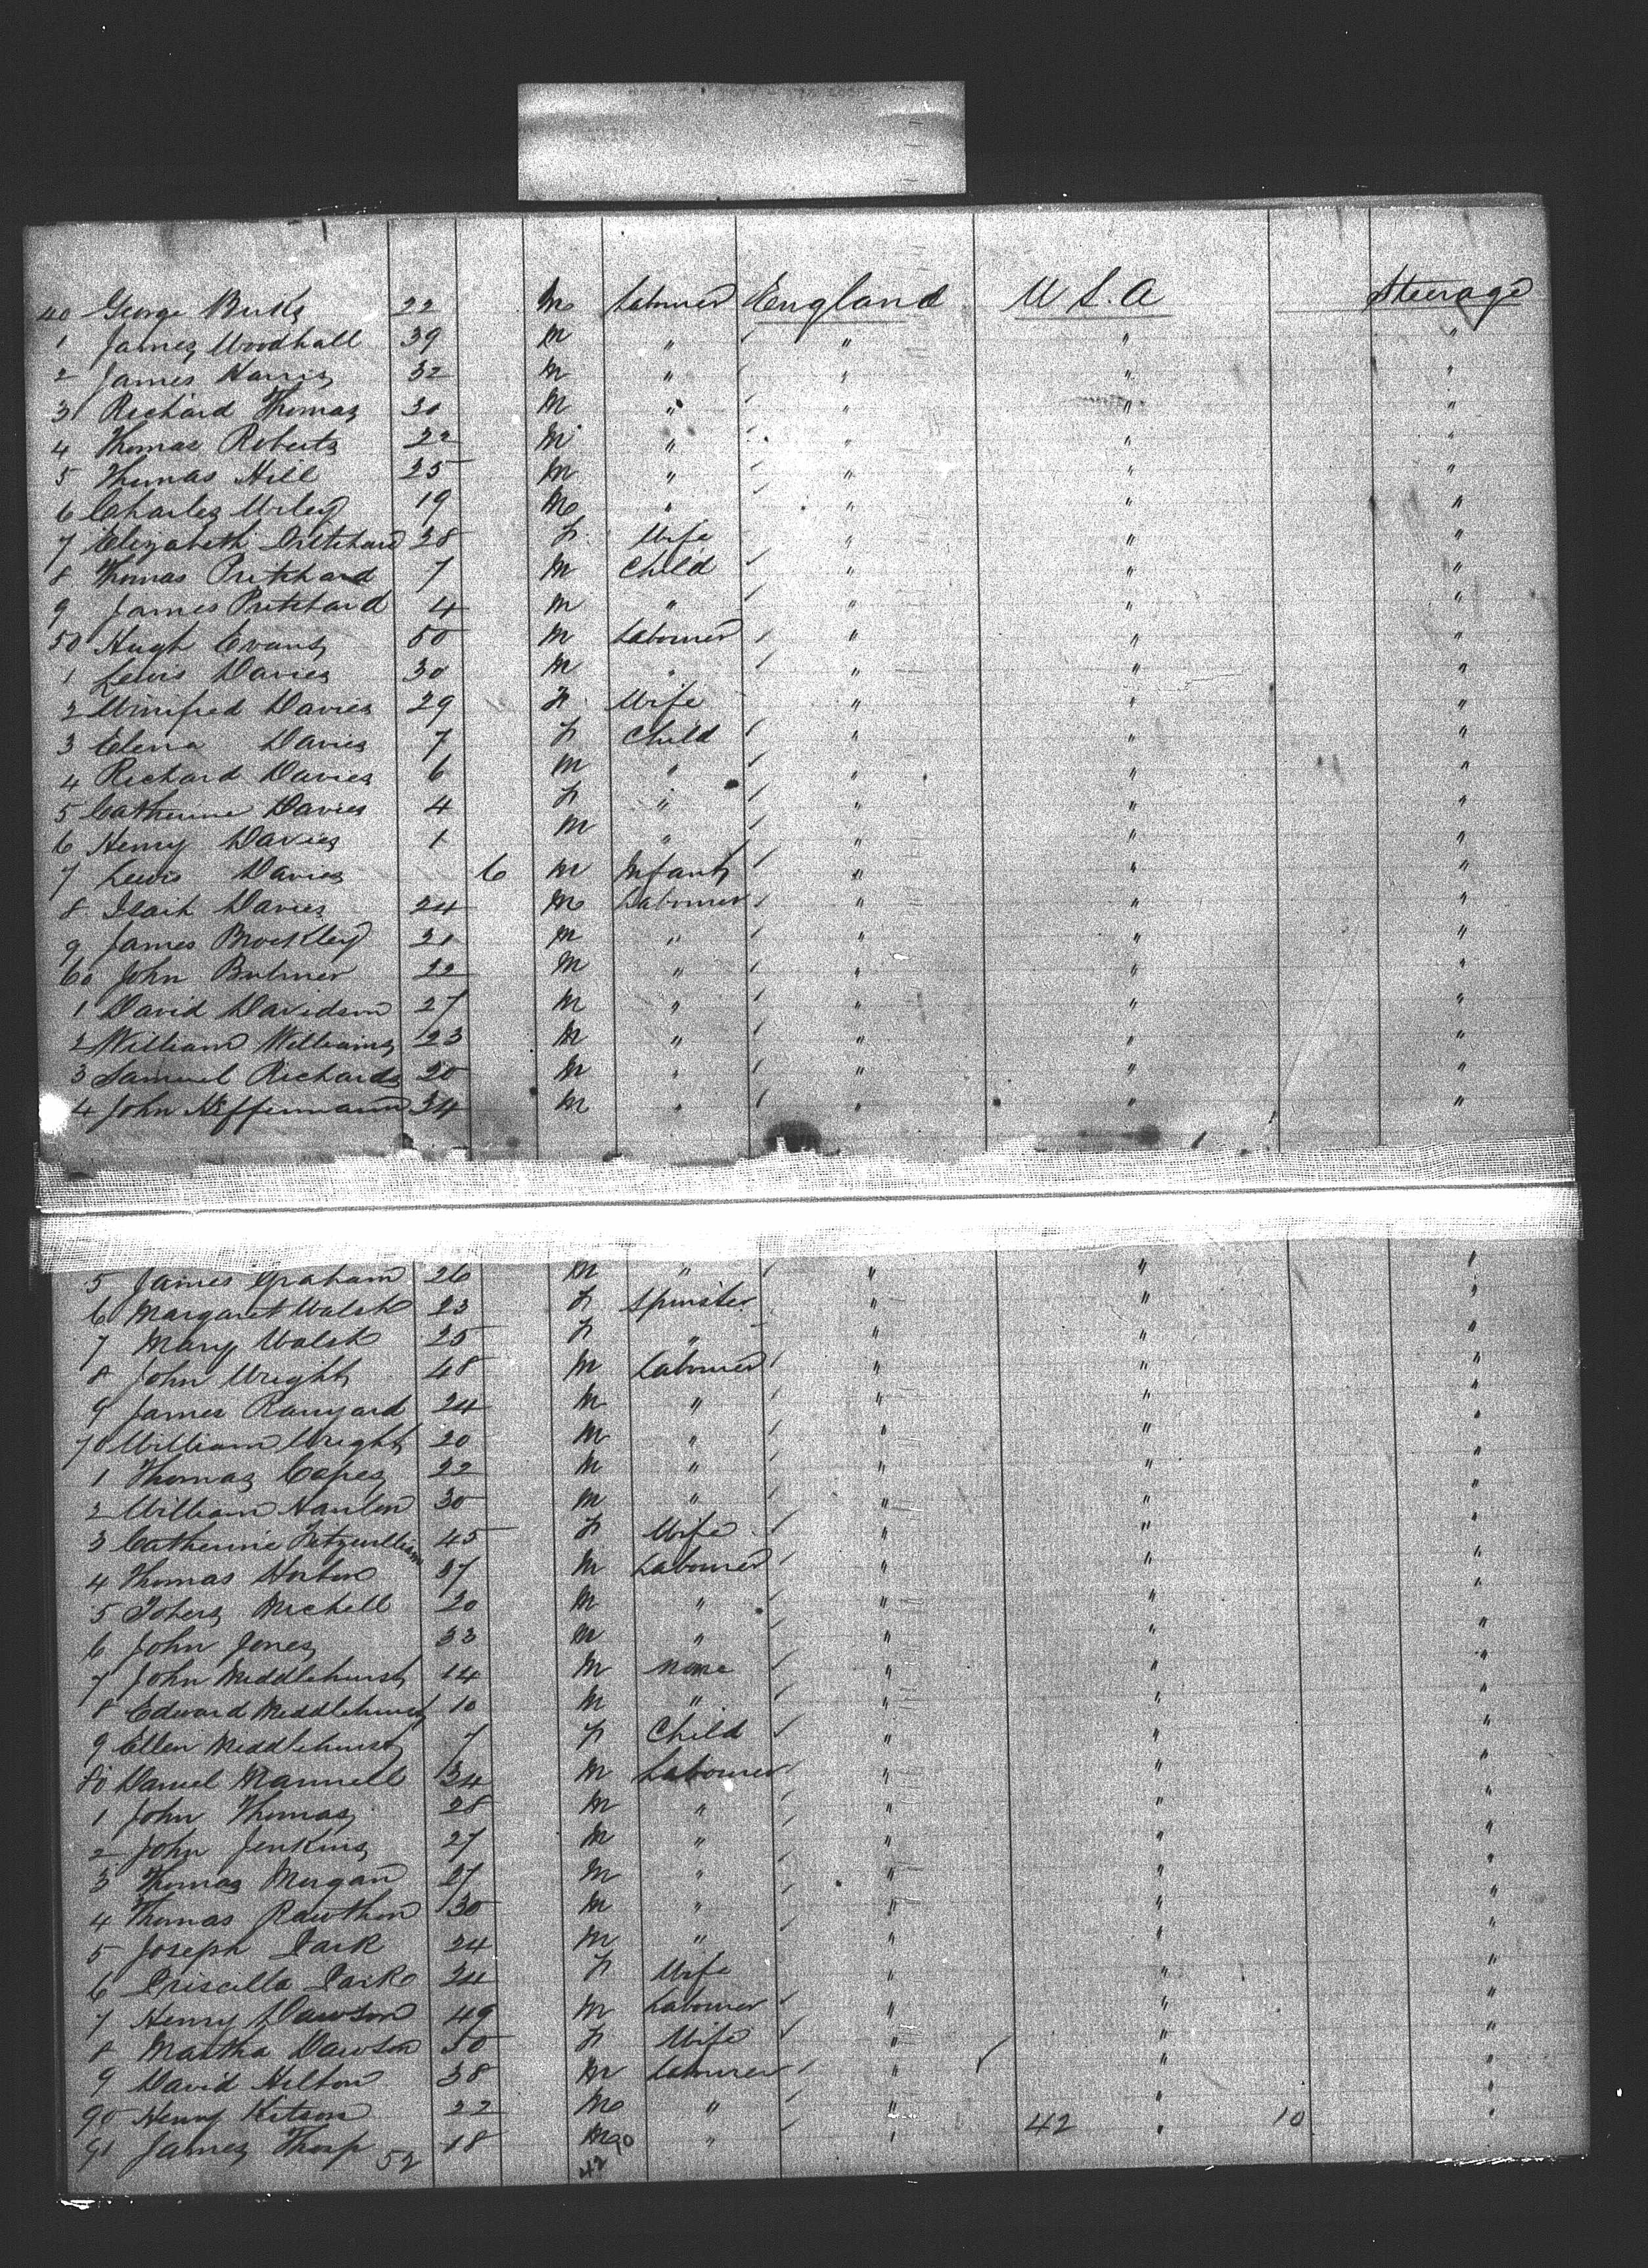 40 George Birks 22 M Labourer England U.S.A Steerage
1 James Woodhall 39 M " " " "
2 James Harris 32 M " " " "
3 Richard Thomas 30 M " " " "
4 Thomas Roberts 22 M " " " "
5 Thomas Hill 25 M " " " "
6 Charles 19 M " " " "
7 Elizabeth Pritchard 28 F Wife " " "
8 Thomas Pritchard 7 M Child " " "
9 James Pritchard 4 M " " " "
50 Hugh Evans 50 M Labourer " " "
1 Lewis Davies 30 M " " " "
2 Winifred Davies 29 F Wife " " "
3 Elena Davies 7 F Child " " "
4 Richard Davies 6 M " " " "
5 Catherine Davies 4 F " " " "
6 Henry Davies 1 M " " " "
7 Lewis Davies 6 M Infant " " "
8 Isaih Davies 24 M Labourer " " "
9 James Brockley 21 M " " " "
60 John Bulmer 22 M " " " "
1 David Davidson 27 M " " " "
2 William Williams 23 M " " " "
3 Samuel Richards 20 M " " " "
4 John Heffernann 34 M " " " "
5 James Graham 26 M " " " "
6 Margaret Walsh 23 F Spinster " " "
7 Mary Walsh 25 F " " " "
8 John Wright 48 M Labourer " " "
9 James Ranyard 24 M " " " "
70 William Wright 20 M " " " "
1 Thomas Capes 22 M " " " "
2 William Hanlon 30 M " " " "
3 Catherine Fitzwilliam 45 F Wife " " "
4 Thomas Horton 37 M Labourer " " "
5 Michell 20 M " " " "
6 John Jones 33 M " " " "
7 John Middlehurst 14 M None " " "
8 Edward Middlehurst 10 M " " " "
9 Ellen Middlehurst 7 F Child " " "
80 Daniel Mannell 34 M Labourer " " "
1 John Thomas 28 M " " " "
2 John Jenkins 27 M " " " "
3 Thomas Morgan 27 M " " " "
4 Thomas Rawthon 30 M " " " "
5 Joseph Park 24 M " " " "
6 Priscilla Park 24 F Wife " " "
7 Henry Dawson 49 M Labourer " " "
8 Martha Dawson 50 F Wife " " "
9 David Hilton 38 M Labourer " " "
90 Henry Kitson 22 M " " " "
91 James Thorp 18 M " " " "
52 42 10 42 10